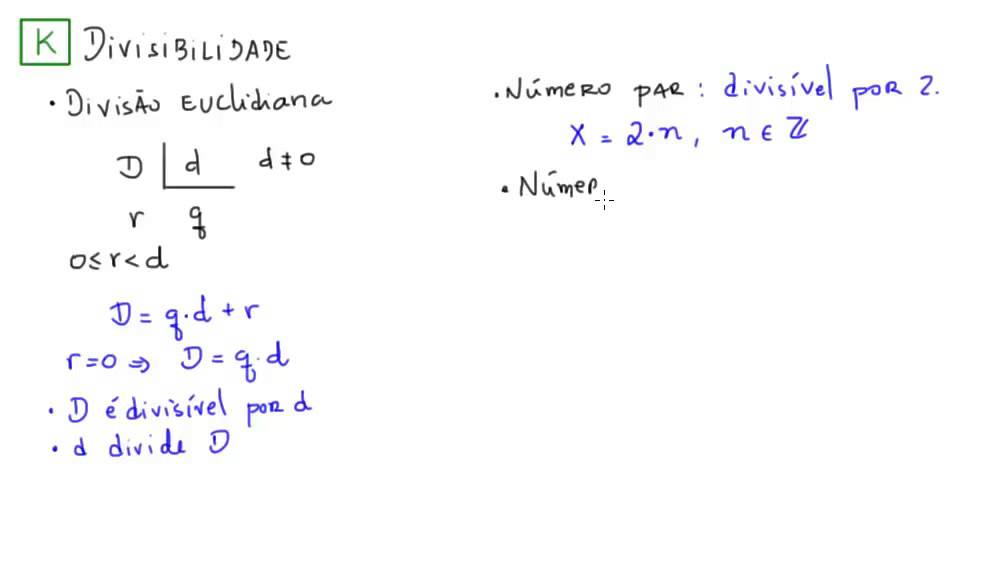 K DIVISIBILIDADE
• DIVISÃO EUCLIDIANA
D d d ≠ 0
r q
0 ≤ r < d
D = q·d + r
r = 0 ⇒ D = q·d
• D é divisível por d
• d divide D
• NÚMERO PAR: divisível por 2.
X = 2·n, n ∈ ℤ
• NÚMER